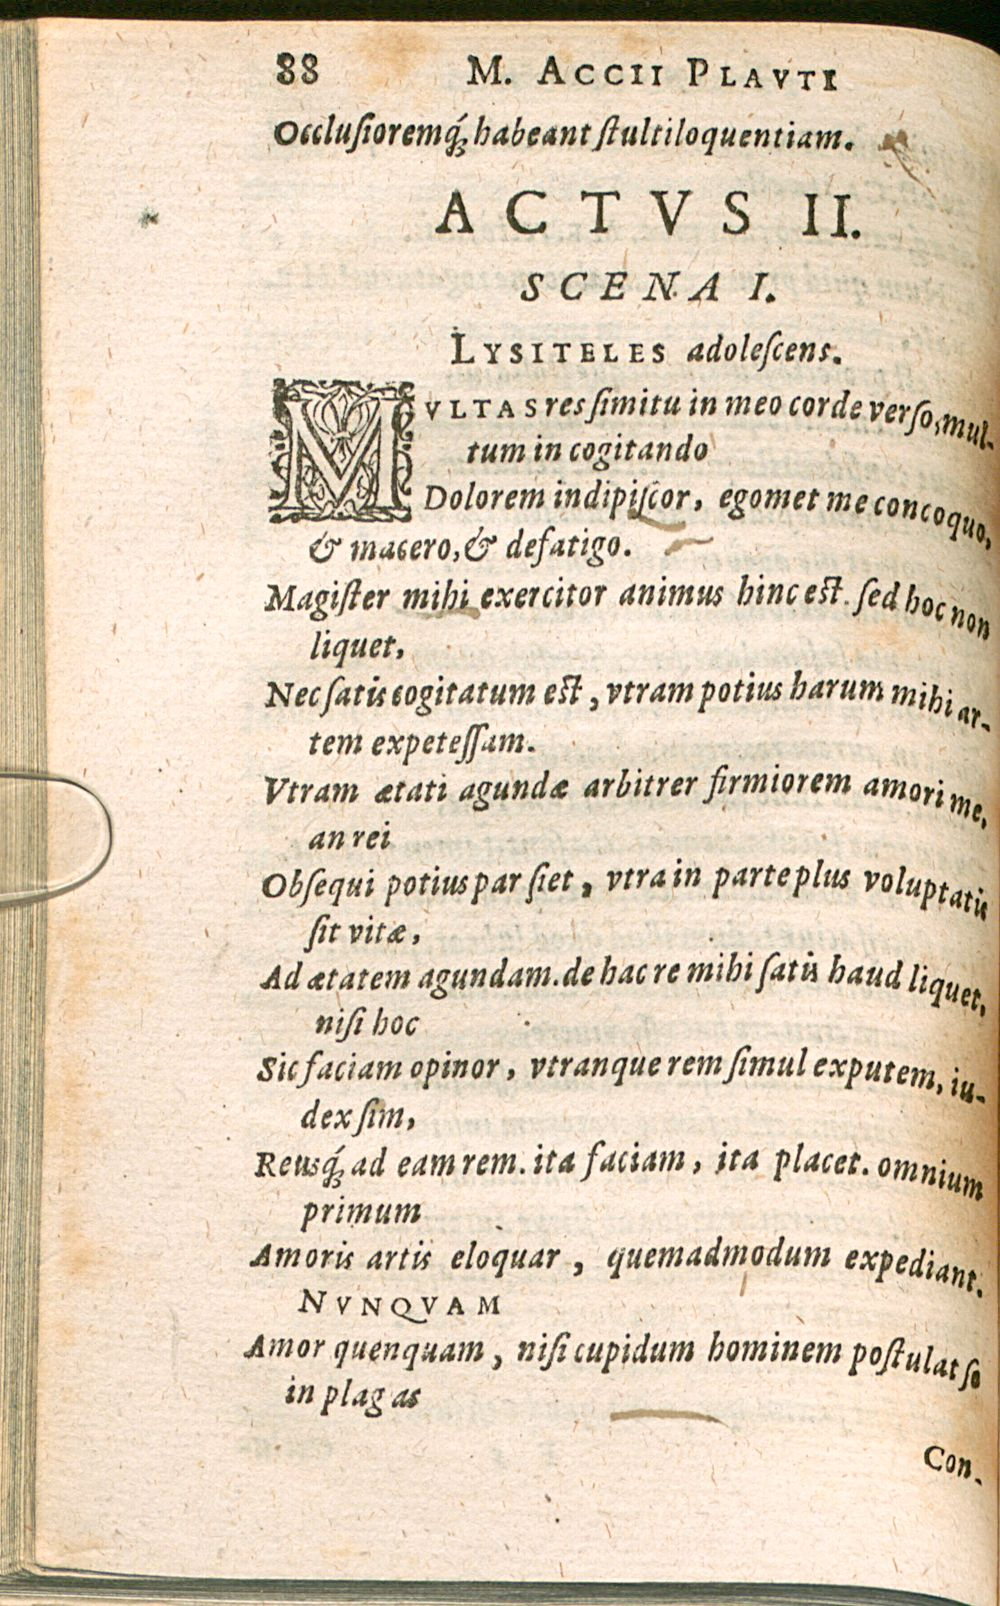 88 M. ACCII PLAVTI
Occluſioremq́ꝫ habeant ſtultiloquentiam.
ACTVS II.
SCENA I.
LYSITELES adoleſcens.
MVLTAS res ſimitu in meo corde verſo, mul-
tum in cogitando
Dolorem indipiſcor, egomet me concoquo,
& macero, & defatigo.
Magiſter mihi exercitor animus hinc eſt. ſed hoc non
liquet,
Nec ſatis cogitatum eſt, vtram potius harum mihi ar-
tem expeteſſam.
Vtram ætati agundæ arbitrer firmiorem amori me,
an rei
Obſequi potius par ſiet, vtra in parte plus voluptatis
ſit vitæ,
Ad ætatem agundam. de hac re mihi ſatis haud liquet,
niſi hoc
Sic faciam opinor, vtranque rem ſimul exputem, iu-
dex ſim,
Reusq́ꝫ ad eam rem. ita faciam, ita placet. omnium
primum
Amoris artis eloquar, quemadmodum expediant.
NVNQVAM
Amor quenquam, niſi cupidum hominem poſtulat ſe
in plagas
Con-